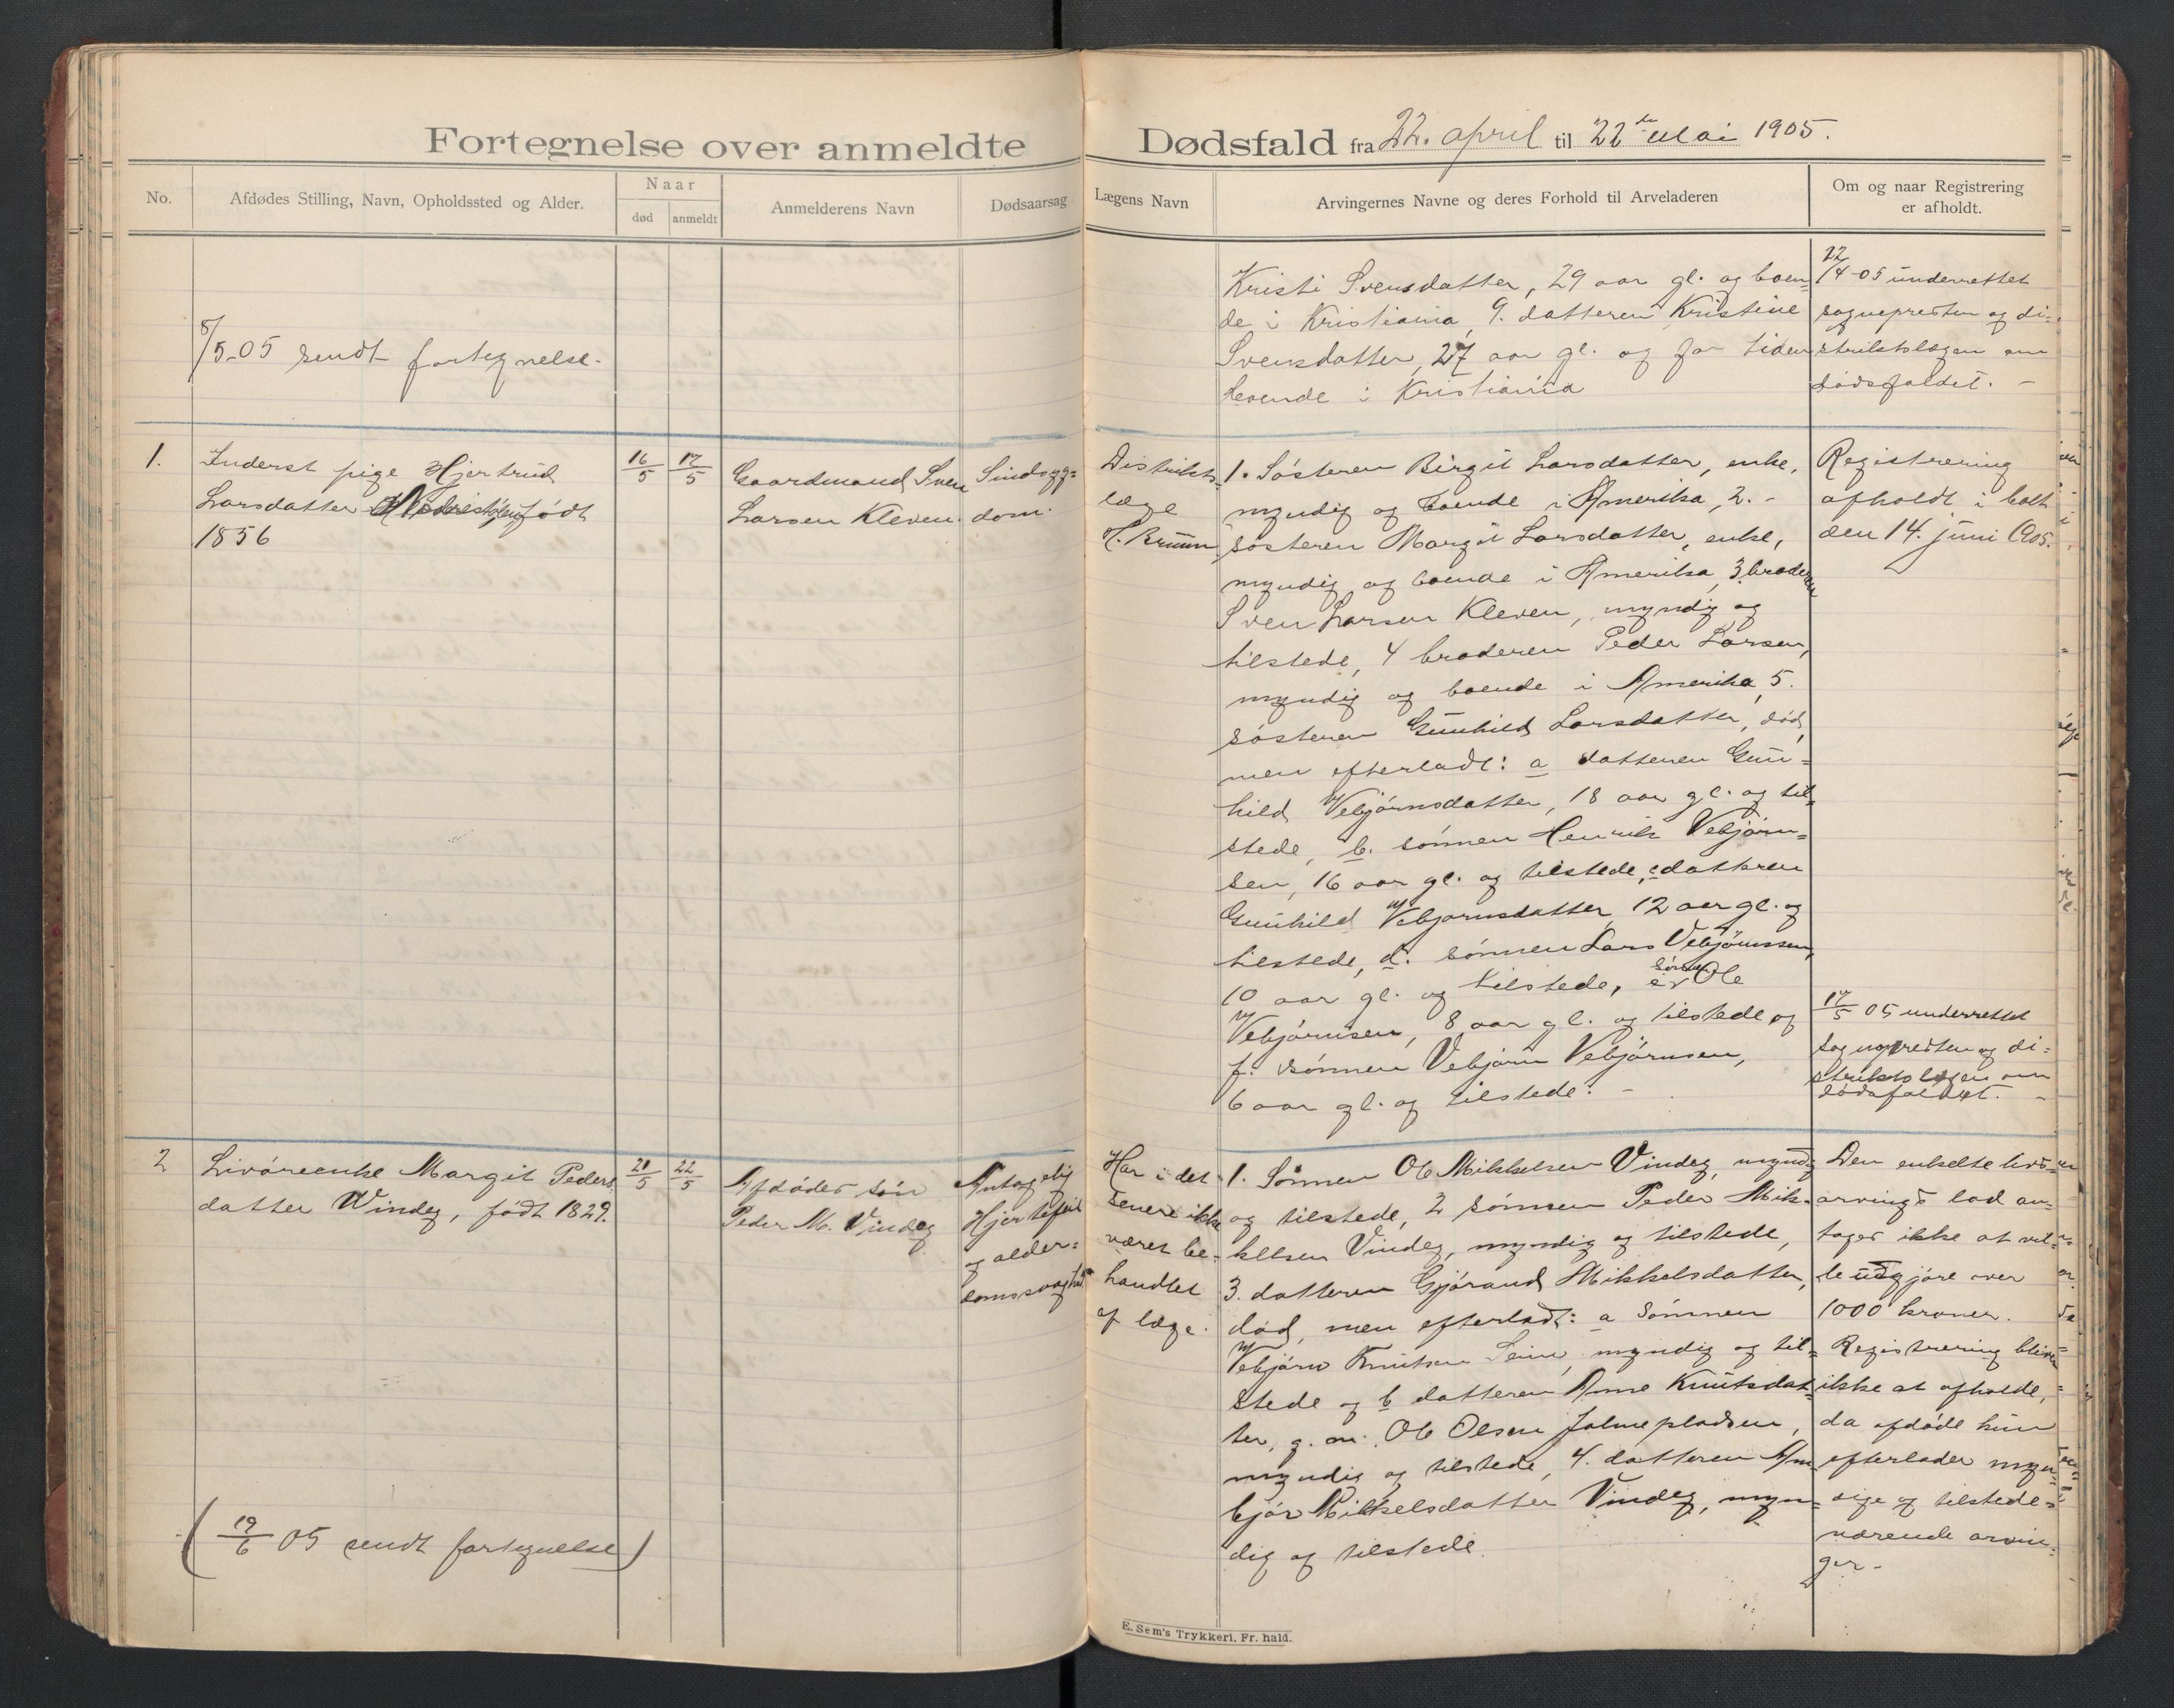 Fortegnelse over anmeldte Dødsfald fra 22. april til 22de Mai 1905.
No.
Afdødes Stilling, Navn, Opholdssted og Alder.
Naar
død
anmeldt
Anmelderens Navn
Dødsaarsag
Lægens Navn
Arvingernes Navne og deres Forhold til Arveladeren
Om og naar Registrering
er afholdt.
8/5-05 sendt fortegnelse.
Kristi Svensdatter, 29 aar gl. og boen-
de i Kristiania, 9. datteren Kristine
Svensdatter, 27 aar gl. og for tiden
boende i Kristiania
22/4-05 underrettet
sognepresten og di-
striktslægen om
dødsfaldet. -
1.
Inderst pige Hjertrud
Larsdatter født
1856
16/5
17/5
Gaardmand Sven
Larsen Kleven.
Sindsyg=
dom.
Distrikts=
læge
H. Bruun
1. Søsteren Birgit Larsdatter, enke,
myndig og boende i Amerika, 2. -
søsteren Margit Larsdatter, enke,
myndig og boende i Amerika, 3 broderen
Sven Larsen Kleven, myndig og
tilstede, 4 broderen Peder Larsen,
myndig og boende i Amerika, 5.
søsteren Gunhild Larsdatter, død,
men efterladt: a datteren Gun=
hild Vebjørnsdatter, 18 aar gl. og til=
stede, b. sønnen Henrik Vebjørn=
sen, 16 aar gl. og tilstede, c datteren
Gunhild Vebjørnsdatter, 12 aar gl. og
tilstede, d. sønnen Lars Vebjørnssen,
10 aar gl. og tilstede, e sønnen Ole
Vebjørnsen, 8 aar gl. og tilstede og
f. sønnen Vebjørn Vebjørnsen,
6 aar gl. og tilstede. -
Registrering
afholdt i holt
den 14. juni 1905.
17/5 05 underrettet
sognepresten og di=
striktslægen om
dødsfaldet. -
2
Livøreenke Margit Peders
datter Vindeg, født 1829.
20/5
22/5
Afdødes søn
Peder M. Vindeg
Antagelig
Hjertefeil
og alder=
domssvaghed
Har i det
senere ikke
været be-
handlet
af læge.
1. Sønnen Ole Mikkelsen Vindeg, myndig
og tilstede, 2 sønnen Peder Mik-
kelsen Vindeg, myndig og tilstede,
3. datteren Gjørand Mikkelsdatter,
død, men efterladt: a sønnen
Vebjørn Knutsen Seim, myndig og til=
stede og b datteren Anne Knutsdat=
ter, g. m. Ole Olsen Jalmepladsen,
myndig og tilstede, 4. datteren Am
bjør Mikkelsdatter Vindeg, myn=
dig og tilstede.
Den enkelte livs-
arvings lod an-
tages ikke at vil-
le udgjøre over
1000 kroner.
Registrering bliver
ikke at afholde,
da afdøde kun
efterlader myn=
dige og tilstede=
værende arvin=
ger -
(19/6 05 sendt fortegnelse)
E. Sem's Trykkeri, Fr. hald.